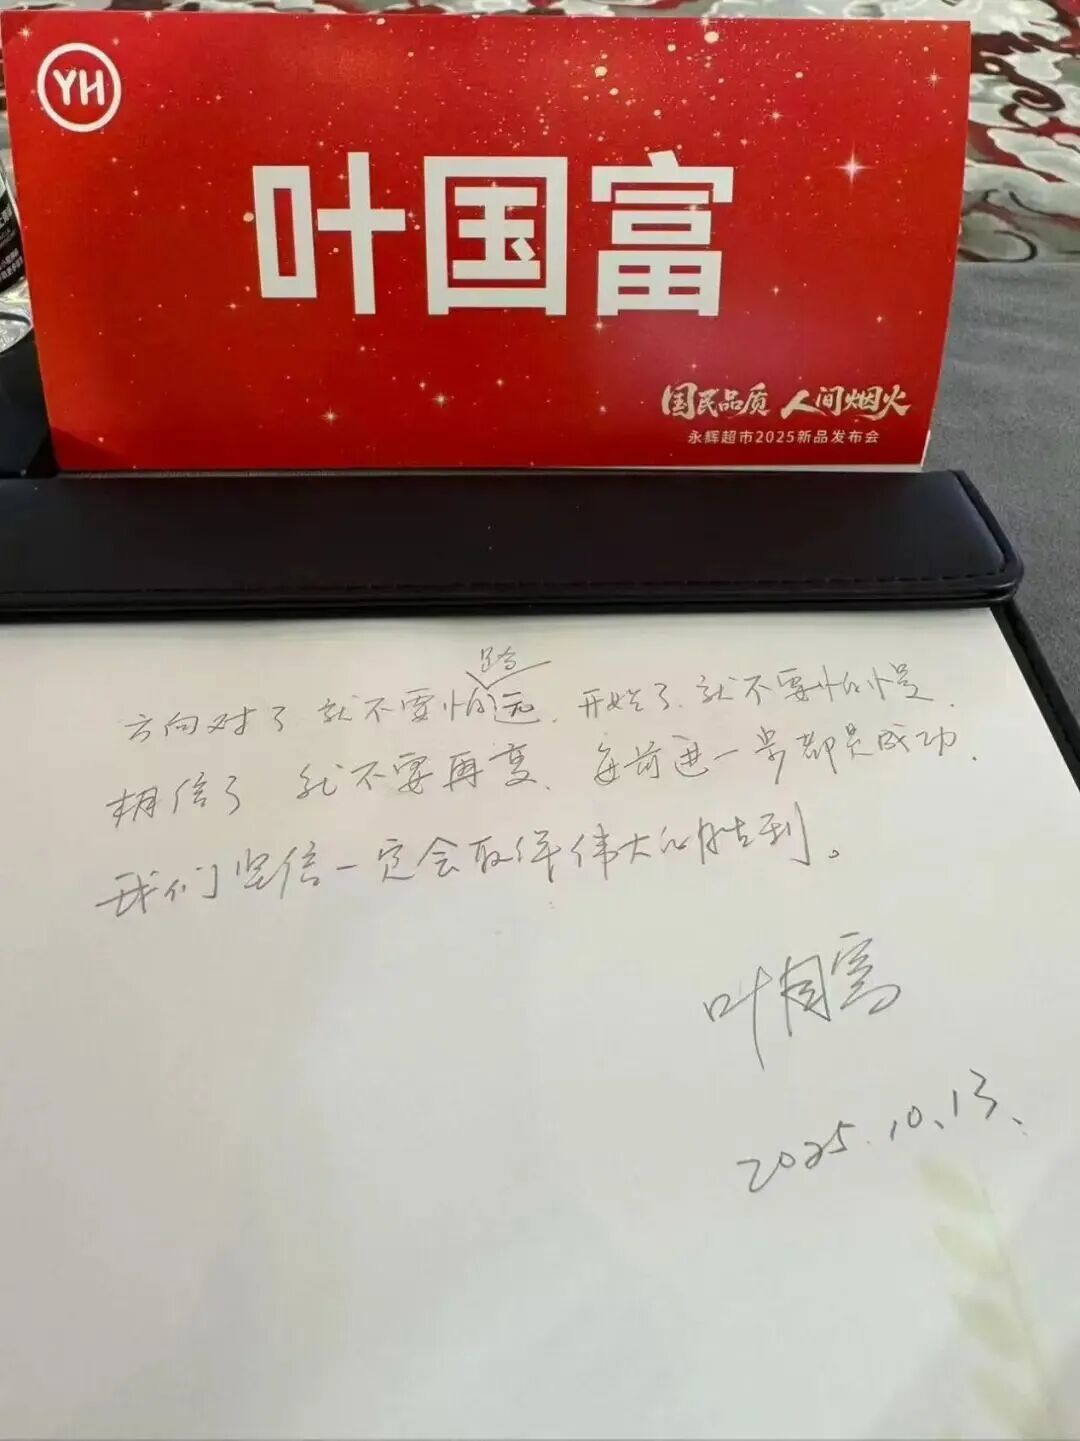 YH
叶国富
国民品质 人间烟火
永辉超市2025新品发布会
路
方向对了 就不要怕远、开始了、就不要怕慢、
相信了 就不要再变、每前进一步都是成功、
我们坚信一定会取得伟大的胜利。
叶国富
2025.10、13、